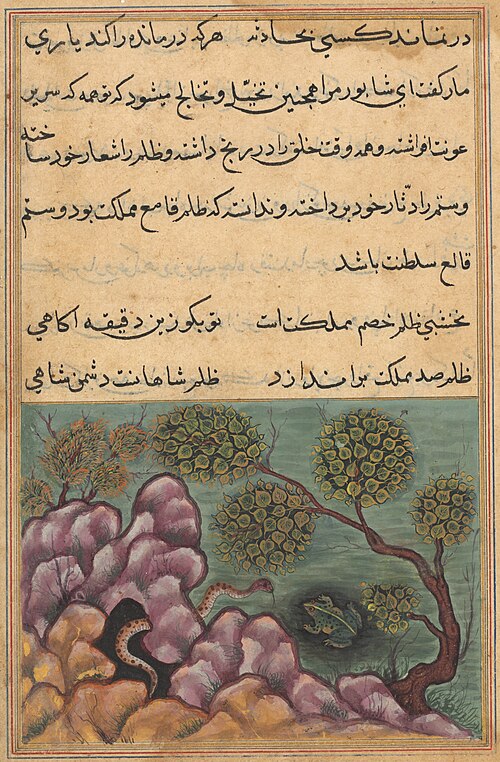 در نماند کسی بحادثه هرکه درمانده را کند یاری
مار گفت ای شاپور مرا همچنین تخیّل و تخالج میشود که تو همه که سریر
عونت افراشتند و همه وقت خلق را در رنج داشتند و ظلم را شعار خود ساخته
وستم را دثار خود برداختند و ندانت که ظلم قامع مملکت بود و ستم
قالع سلطنت باشد
نخشبی ظلم خصم مملکت است تو بکو زین دقیقه اکاهی
ظلم صد مملکت براندازد ظلم شاهانت دشمن شاهی